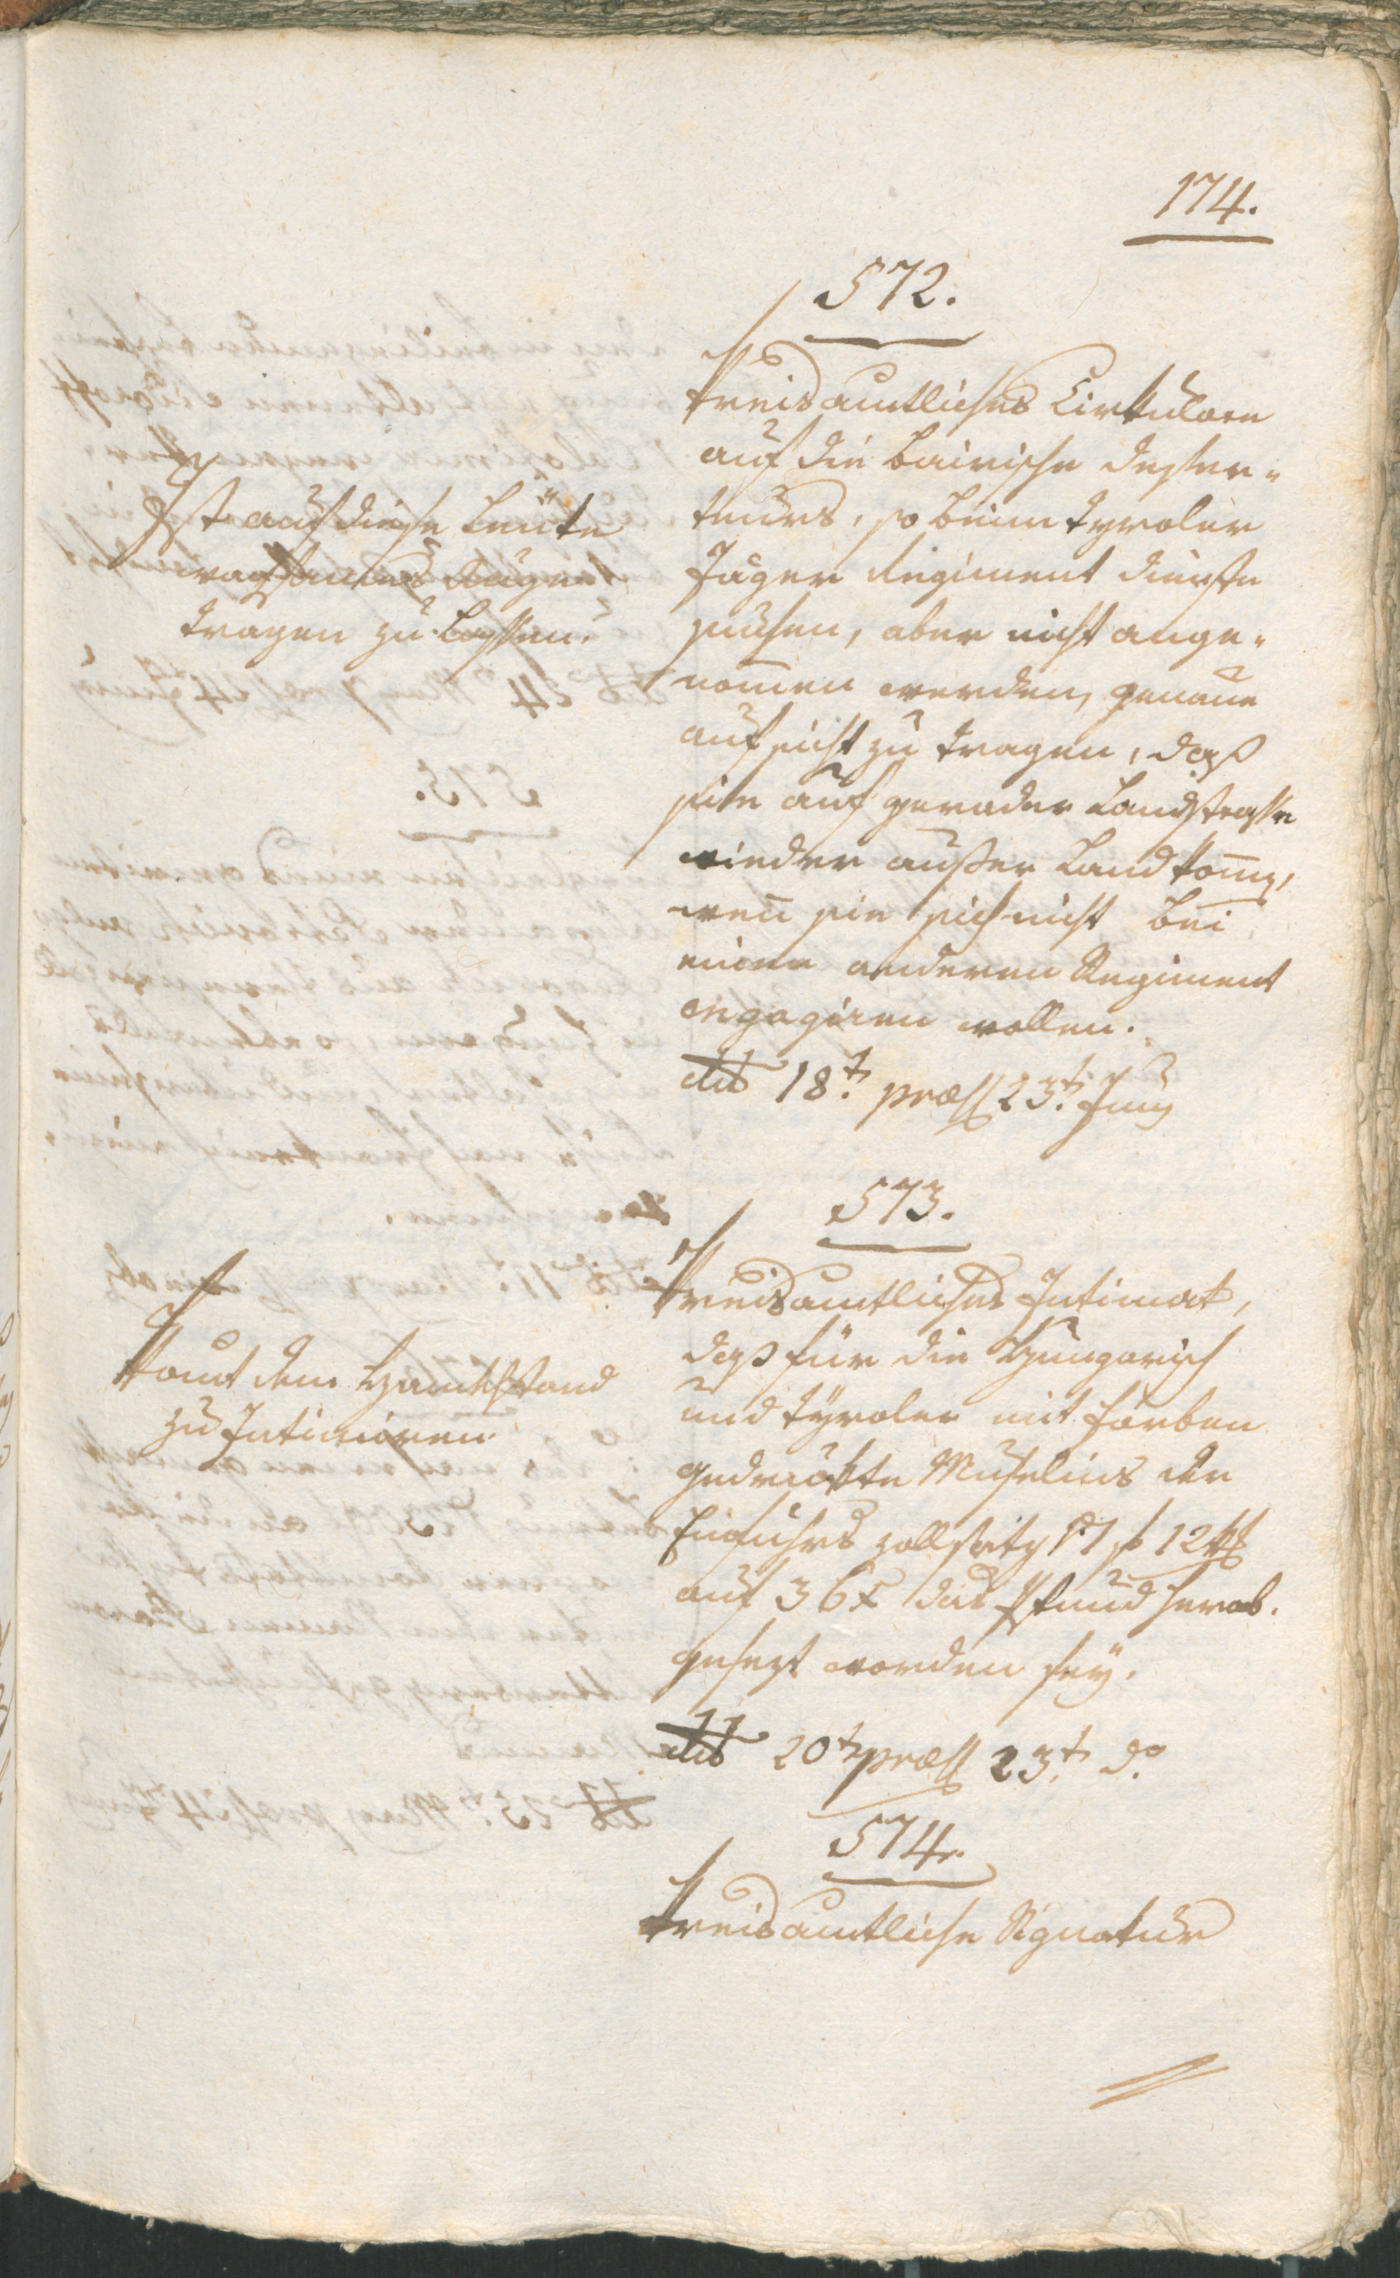 174.
572.
Kreisamtliches Cirkulare
auf die bairische Deser-
teurs, so beim Tyroler
Jäger Regiment Dienste
suchen, aber nicht ange-
nomen werden, genaue
aufsicht zu tragen, daß
sie auf gerader Landstrasse
wieder außer Land kom̅,
wen̅ sie sich nicht bei
einem anderen Regiment
engagiren wollen.
dtō 18t. præss 23t. Juny
Ist auf diese Leüte
wachsames Auge
tragen zu lassen.
573.
Kreisamtliches Intimat,
daß für die Hungarisch
und Tyroler mit farben
gedruckte Musselins der
Einfuhrs zoll
auf 36 x das Pfund herab.
gesezt worden sey.
dtō 20t præss 23t. do
Kömt dem Handlstand
zu Intimiren
574.
Kreisamtliche Signatur